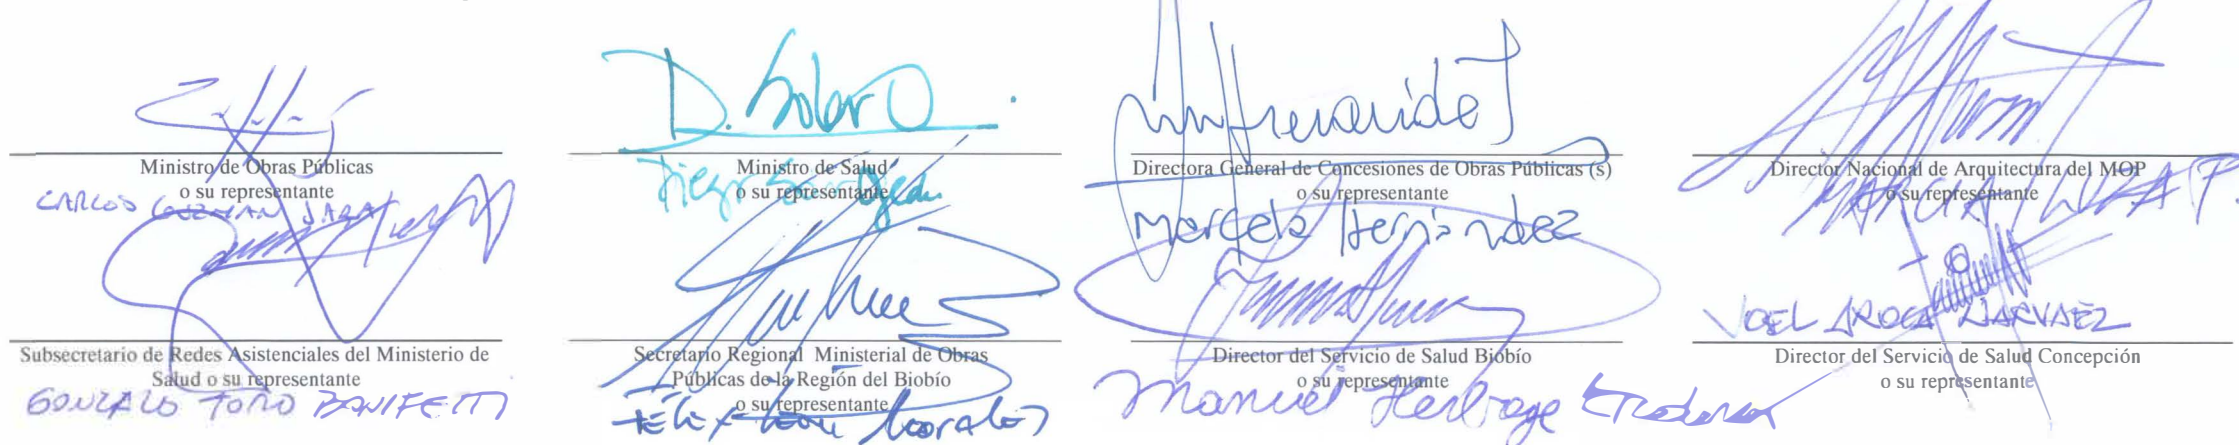 D. Solar O.
Ministro de Obras Públicas
o su representante
CARLOS GUZMAN JARA
Ministro de Salud
o su representante
Diego
Directora General de Concesiones de Obras Públicas (s)
o su representante
Marcela Hernández
Director Nacional de Arquitectura del MOP
o su representante
Subsecretario de Redes Asistenciales del Ministerio de
Salud o su representante
GONZALO TORO BONIFETTI
Secretario Regional Ministerial de Obras
Públicas de la Región del Biobío
o su representante
FELIX Morales
Director del Servicio de Salud Biobío
o su representante
Manuel
JOEL NARVAEZ
Director del Servicio de Salud Concepción
o su representante